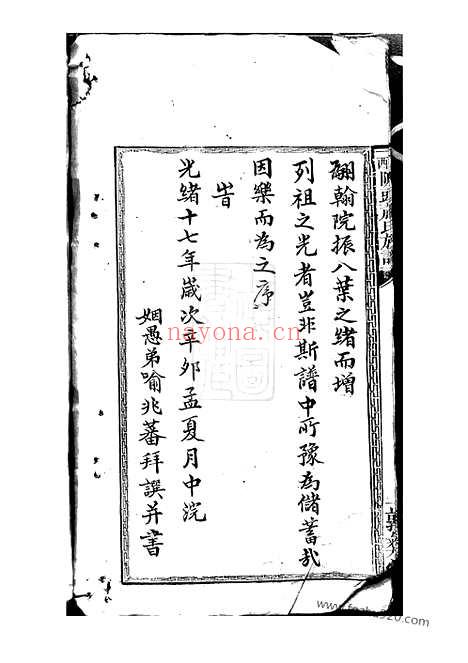 翮翰院振八葉之緒而增
列祖之光者豈非斯譜中所豫為儲蓄哉
因樂而為之序
旹
光緒十七年歲次辛卯孟夏月中浣
姻愚弟喻兆蕃拜譔并書
nayona.cn